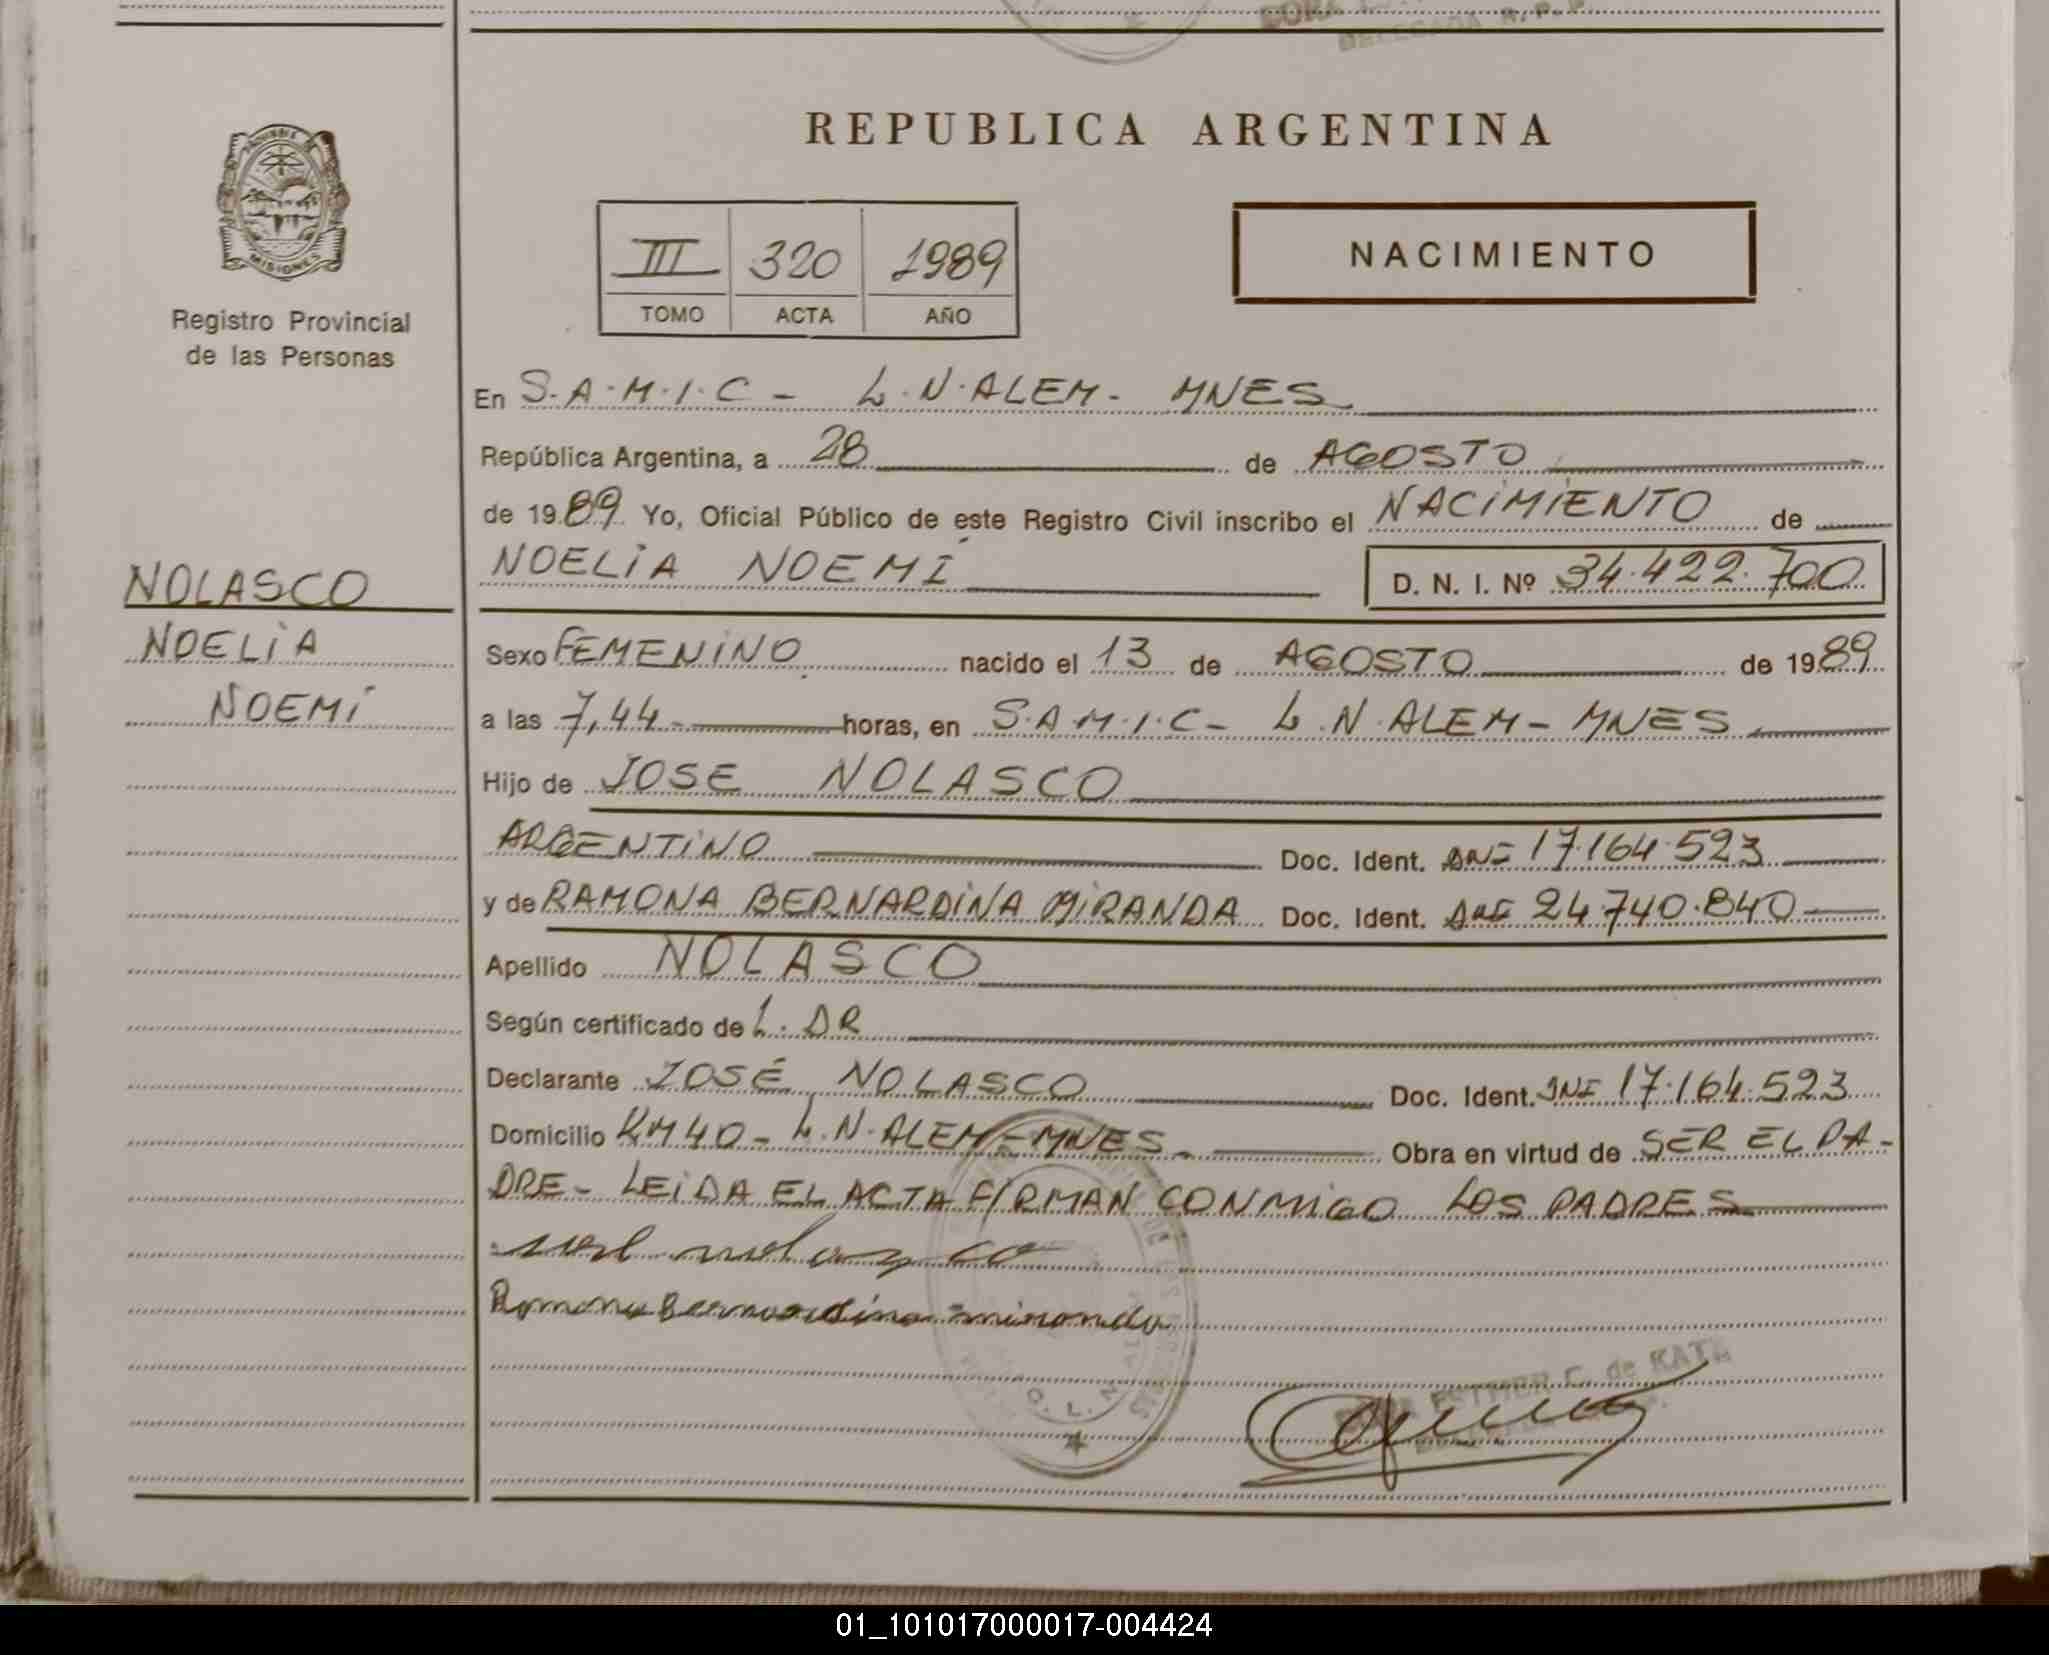 REPUBLICA ARGENTINA
MISIONES
Registro Provincial
de las Personas
III 320 1989
TOMO ACTA AÑO
NACIMIENTO
En S.A.M.I.C - L.N.ALEM - MNES
República Argentina, a 28 de AGOSTO
de 1989 Yo, Oficial Público de este Registro Civil inscribo el NACIMIENTO de
NOELIA NOEMI D. N. I. Nº 34.422.700
NOLASCO
NOELIA
NOEMI
Sexo FEMENINO nacido el 13 de AGOSTO de 1989
a las 7,44 horas, en S.A.M.I.C - L.N.ALEM - MNES
Hijo de JOSE NOLASCO
ARGENTINO Doc. Ident. DNI 17.164.523
y de RAMONA BERNARDINA MIRANDA Doc. Ident. DNI 24.740.840
Apellido NOLASCO
Según certificado de L. DR
Declarante JOSÉ NOLASCO Doc. Ident. DNI 17.164.523
Domicilio KM 40 - L.N.ALEM - MNES - Obra en virtud de SER EL PA-
DRE - LEIDA EL ACTA FIRMAN CONMIGO LOS PADRES
nolasco
Ramona Bernardina miranda
ESTHER C. de KATZ
01_101017000017-004424